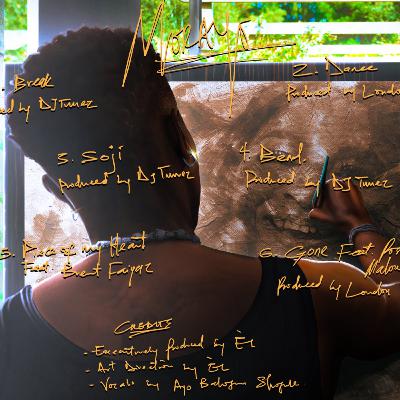 MORAYO
1. Break
Produced by DJ Tunez
2. Dance
Produced by London
3. Soji
Produced by DJ Tunez
4. Bend.
Produced by DJ Tunez
5. Piece of my Heart
Feat. Brent Faiyaz
6. Gone Feat. Pos
Malou
Produced by London
CREDITS
- Executively produced by Èl
- Art Direction by Èl
- Vocals by Ayo Balogun